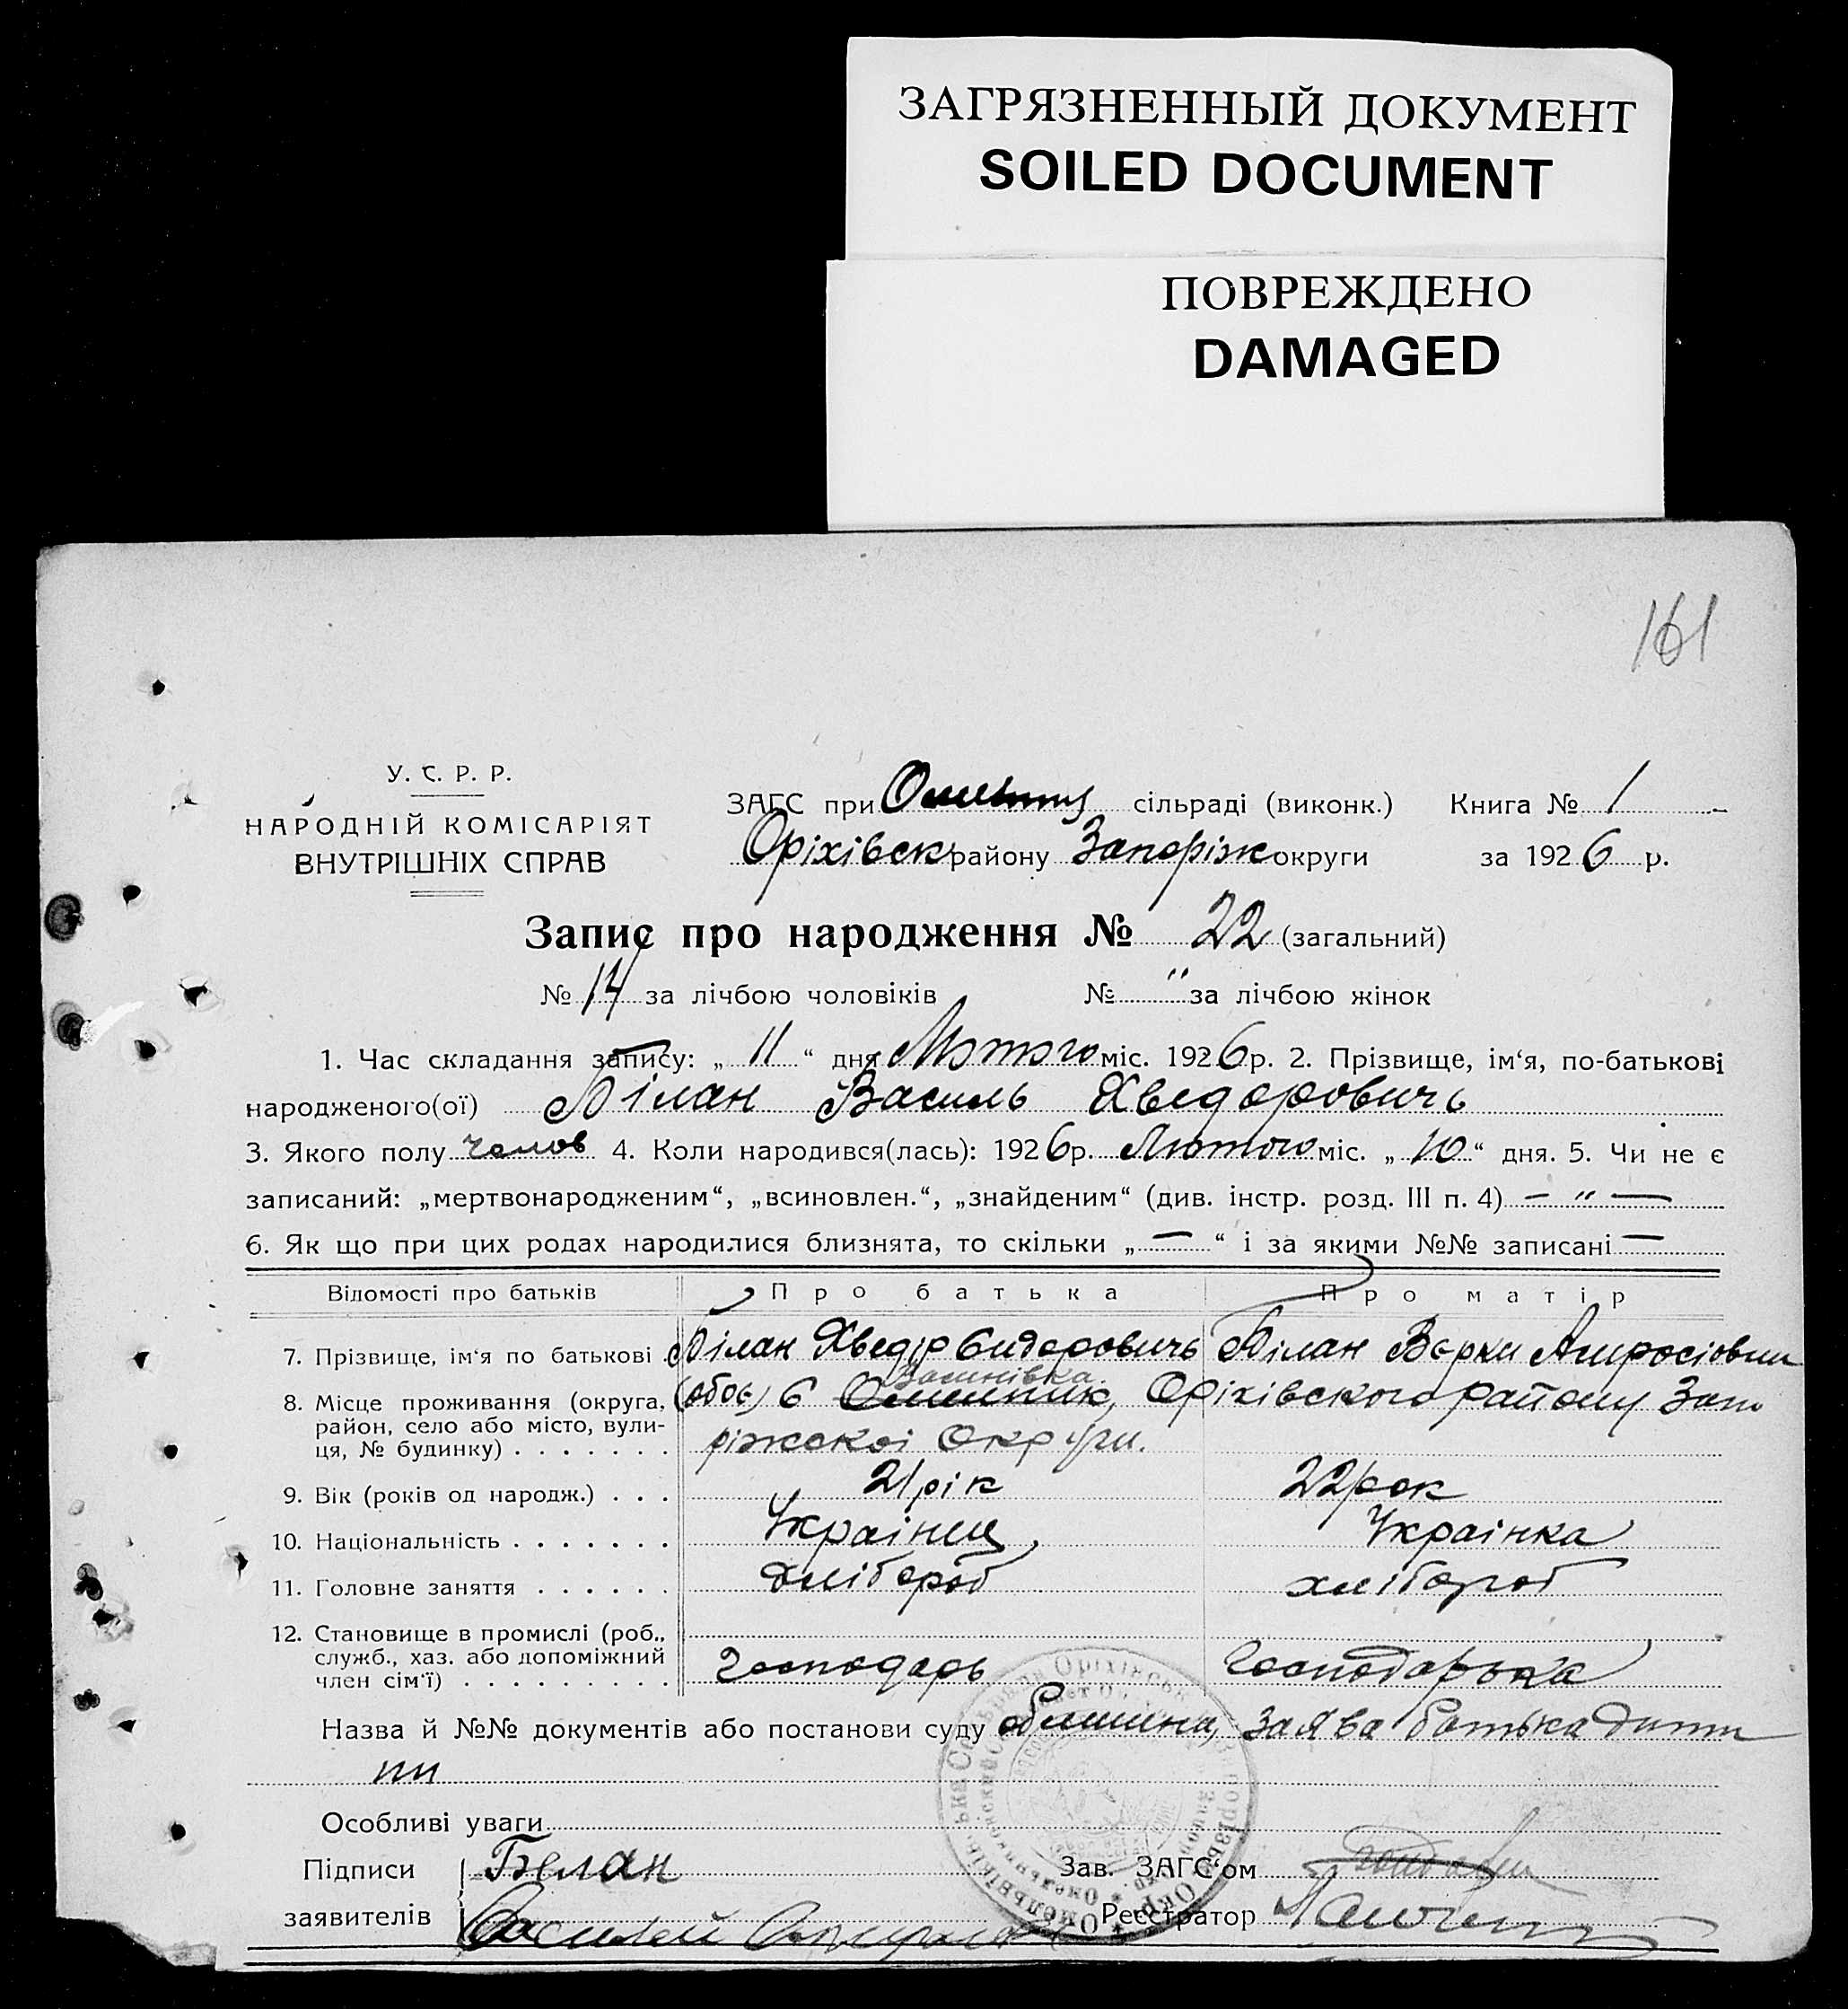 ЗАГРЯЗНЕННЫЙ ДОКУМЕНТ
SOILED DOCUMENT
ПОВРЕЖДЕНО
DAMAGED
161
У. С. Р. Р.
НАРОДНІЙ КОМІСАРІЯТ
ВНУТРІШНІХ СПРАВ
ЗАГС при сільраді (виконк.) Книга № 1
Оріхівск району Запоріж округи за 1926 р.
Запис про народження № 22 (загальний)
№ 14 за лічбою чоловіків № " за лічбою жінок
1. Час складання запису: „ 11 “ дня Лютого міс. 1926 р. 2. Прізвище, ім‘я, по-батькові
народженого(ої) Білан Василь Хведоровичь
3. Якого полу челов 4. Коли народився(лась): 1926 р. Лютого міс. „ 10 “ дня. 5. Чи не є
записаний: „мертвонародженим“, „всиновлен.“, „знайденим“ (див. інстр. розд. III п. 4) — " —
6. Як що при цих родах народилися близнята, то скільки „ — “ і за якими №№ записані —
Відомості про батьків Про батька Про матір
7. Прізвище, ім‘я по батькові Білан Хведір Сидоровичь Білан Варки
8. Місце проживання (округа, район, село або місто, вулиця, № будинку) (обоє) с Оріхівского району Запо
ріжскоі Округи.
9. Вік (років од народж.) 21 рік 22 рок
10. Національність Украінец Украінка
11. Головне заняття хлібороб хлібороб
12. Становище в промислі (роб., служб., хаз. або допоміжний член сім‘ї) господарь господарька
Назва й №№ документів або постанови суду заява батька дити
ни
Особливі уваги
Підписи Белан Зав. ЗАГС‘ом
заявителів Реєстратор